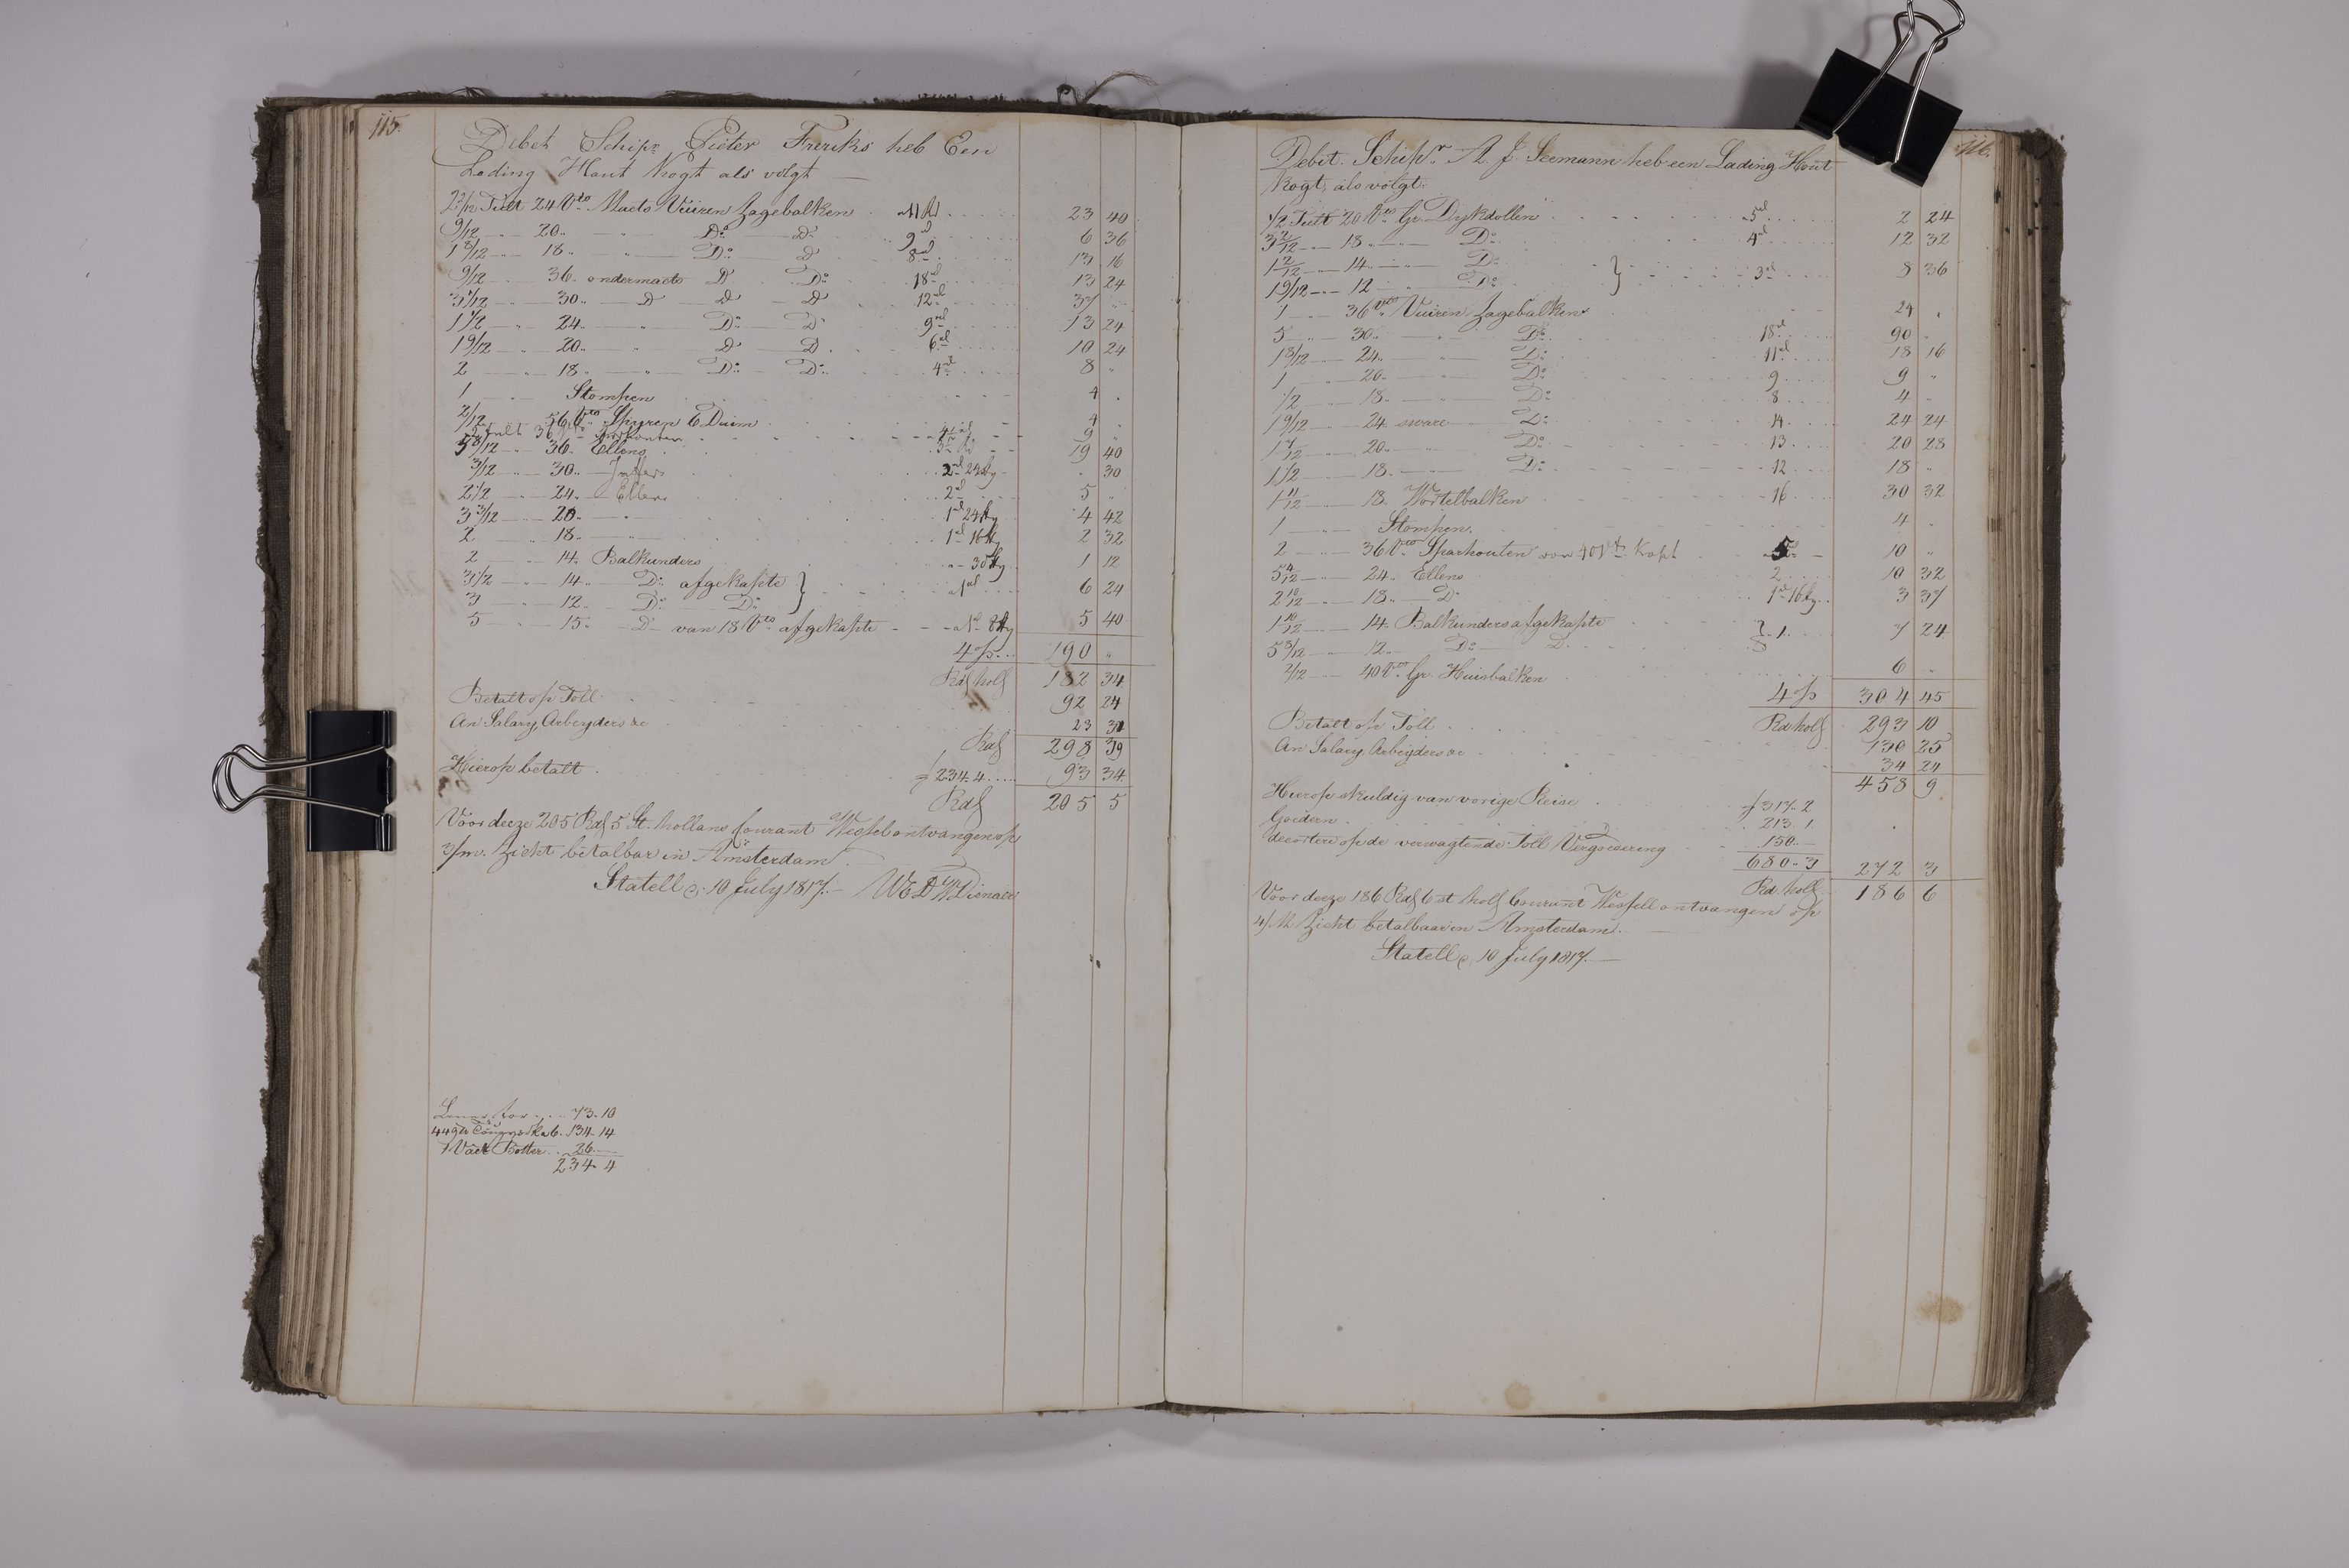 115.
Debet Schipr Pieter Freriks heb Een
Lading Hout Kogt als volgt —
2 2/12 Tult 24 Vto Maets Vüiren Zagebalken 11 Rd 23 40
9/12 — 20 " Do D 9 rd 6 36
1 8/12 — 18 " Do D 8 rd 13 16
9/12 — 36 ondermaets D Do 18 rd 13 24
3 1/12 — 30 D D D 12 rd 37 "
1 1/2 — 24 " Do D 9 rd 13 24
1 9/12 — 20 " D D 6 rd 10 24
2 — 18 " Do Do 4 rd 8 "
1 — Stompen 4 "
2/12 56 Vto Spyren 6 Duim 4 "
9 "
5 8/12 — 36 Ellens 3 1/2 Rd 19 40
3/12 — 30 — Juffers 2 rd 24 sty " 30
2 1/2 — 24 — Ellens 2 rd 5 "
3 3/12 — 20 — " 1 rd 24 sty 4 42
2 — 18 — " 1 rd 16 sty 2 32
2 — 14 Balkunders " 30 sty 1 12
3 1/2 — 14 Do afgekapte } 1 rd 6 24
3 — 12 Do Do }
5 — 15 D van 18 Vto afgekapte — 1 rd 8 sty 5 40
4 p 190 "
Rds holl 182 34
Betalt op Toll 92 24
An Salary, Arbeyders &c 23 31
Rds 298 39
Hierop betalt f 234.4 93 34
Rds 205 5
Voor deeze 205 Rds 5 St. hollans Courant Wessel ontvangen op
3/m. Zicht betalbar in Amsterdam
Statell d: 10 July 1817.—
73.10
134.14
1 Vaet Botter 26.—
234.4
116.
Debit. Schipr. A. J. Seemann heb een Lading Hout
Kogt, als volgt:
1/2 Tult 20 Vto Gr Dykdollen 5 rd 2 24
3 2/12 — 18 — Do 4 rd 12 32
1 2/12 — 14 — Do } 3 rd 8 36
1 9/12 — 12 — Do }
1 — 36 Vto Vuiren Zagebalken 24 "
5 — 30 " Do 18 rd 90 "
1 8/12 — 24 " Do 11 rd 18 16
1 — 20 " Do 9 9 "
1/2 — 18 " Do 8 4 "
1 9/12 — 24 sware Do 14 24 24
1 7/12 — 20 " Do 13 20 28
1 1/2 — 18 — Do 12 18 "
1 11/12 — 18 Wortelbalken 16 30 32
1 — Stompen 4 "
2 — 36 Vto Sparhouten van 40 Vt Kapt 5 rd 10 "
5 4/12 — 24 Ellens 2 10 32
2 10/12 — 18 — D 1 rd 16 sty 3 37
1 10/12 — 14 Balkunders afgekapte } 1 7 24
5 3/12 — 12 Do D }
2/12 — 40 Vto Gr Huisbalken 6 "
4 p 304 45
Rd holl 293 10
Betalt op Toll 130 25
An Salary, Arbeyders &c 34 24
458 9
Hierop skuldig van vorige Reise f 317.2
Goedern 213.1
decortere op de verwagtende Toll Vergoedering 150.—
680.3 272 3
Rd. holl 186 6
Voor deeze 186 Rds 6 st holl Courant Wessell ontvangen op
4/M Zicht betalbaar in Amsterdam. —
Statell d: 10 July 1817.—